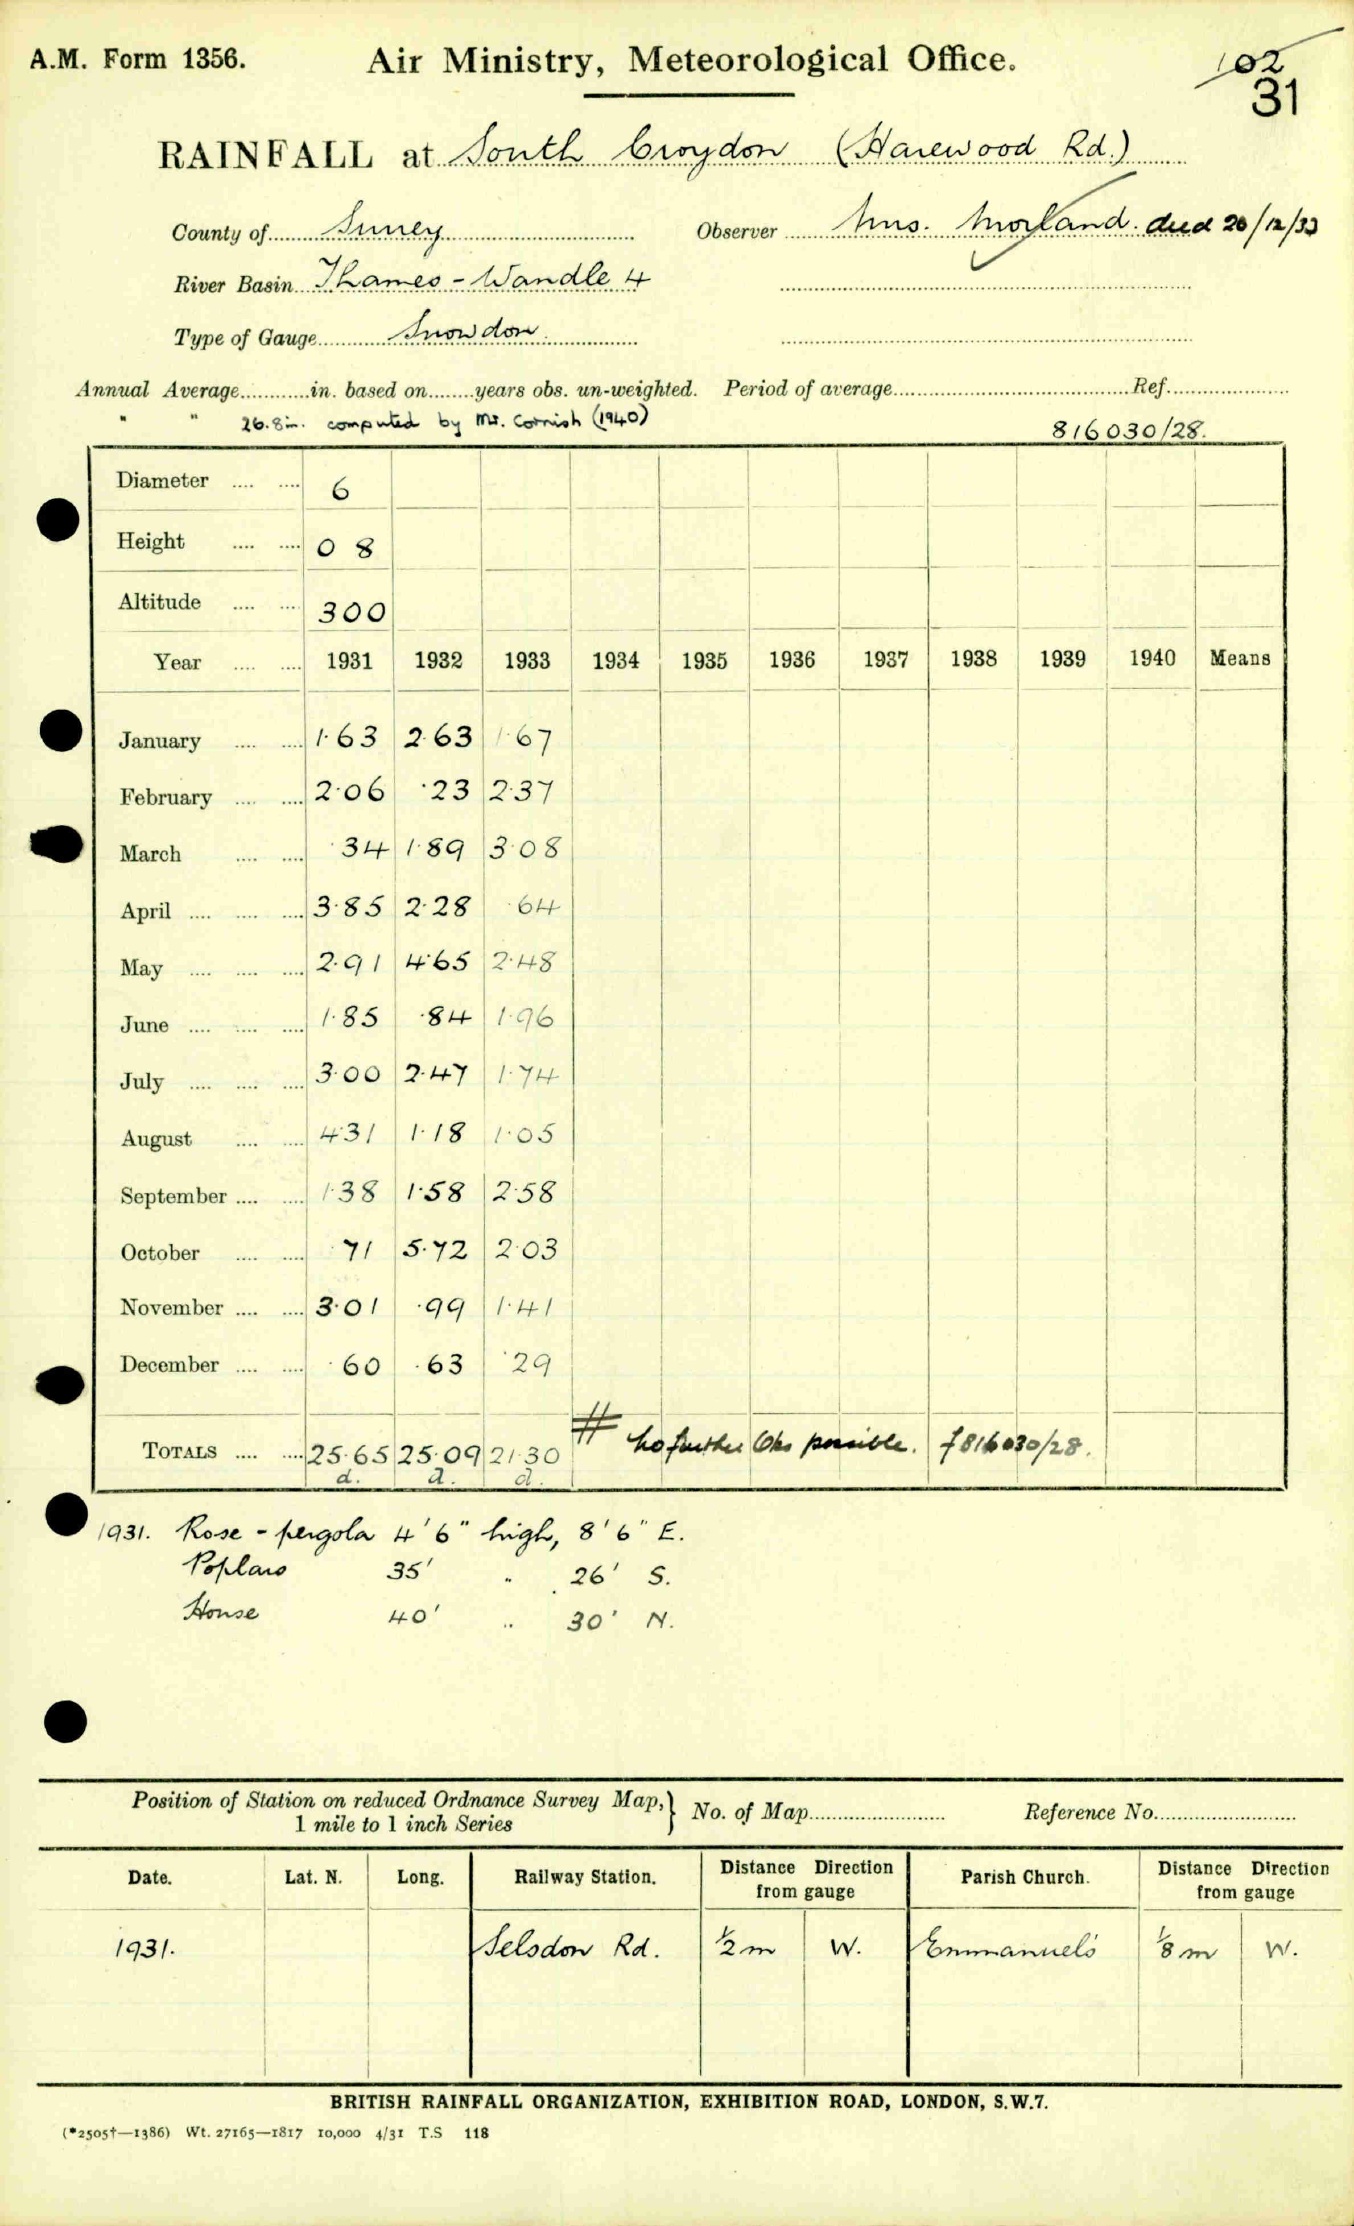 A.M. Form 1356.
Air Ministry, Meteorological Office.
102
31
RAINFALL at South Croydon (Harewood Rd.)
County of Surrey Observer Mrs. Morland. died 20/12/33
River Basin Thames - Wandle 4
Type of Gauge Snowdon.
Annual Average............in. based on........years obs. un-weighted. Period of average............Ref............
" " 26.8in. computed by Mr. Cornish (1940)
816030/28.
Diameter .... .... 6
Height .... .... 0 8
Altitude .... .... 300
Year .... .... 1931 1932 1933 1934 1935 1936 1937 1938 1939 1940 Means
January .... .... 1·63 2·63 1·67
February .... .... 2·06 ·23 2·37
March .... .... ·34 1·89 3·08
April .... .... .... 3·85 2·28 ·64
May .... .... .... 2·91 4·65 2·48
June .... .... .... 1·85 ·84 1·96
July .... .... .... 3·00 2·47 1·74
August .... .... 4·31 1·18 1·05
September .... .... 1·38 1·58 2·58
October .... .... ·71 5·72 2·03
November .... .... 3·01 ·99 1·41
December .... .... ·60 ·63 ·29
TOTALS .... .... 25·65 25·09 21·30 # No further Obs possible. f 816030/28.
d. d. d.
1931. Rose - pergola 4' 6" high, 8' 6" E.
Poplars 35' " 26' S.
House 40' " 30' N.
Position of Station on reduced Ordnance Survey Map,
1 mile to 1 inch Series } No. of Map............ Reference No............
Date. Lat. N. Long. Railway Station. Distance Direction from gauge Parish Church. Distance Direction from gauge
1931. Selsdon Rd. ½ m W. Emmanuel's ⅛ m W.
BRITISH RAINFALL ORGANIZATION, EXHIBITION ROAD, LONDON, S.W.7.
(*2505†—1386) Wt. 27165—1817 10,000 4/31 T.S 118